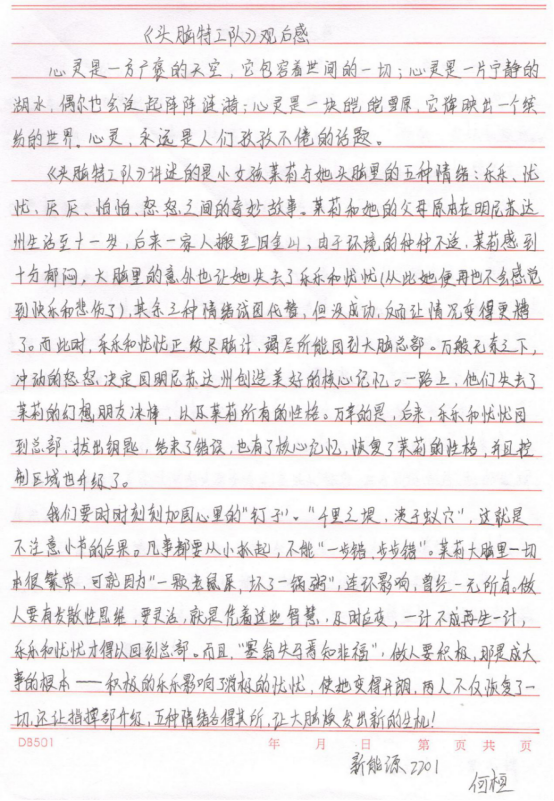 《头脑特工队》观后感
心灵是一方广袤的天空，它包容着世间的一切；心灵是一片宁静的
湖水，偶尔也会泛起阵阵涟漪；心灵是一块皑皑雪原，它辉映出一个缤
纷的世界。心灵，永远是人们孜孜不倦的话题。
《头脑特工队》讲述的是小女孩茉莉与她头脑里的五种情绪：乐乐、忧
忧、厌厌、怕怕、怒怒之间的奇妙故事。茉莉和她的父母原本在明尼苏达
州生活至十一岁，后来一家人搬至旧金山，由于环境的种种不适，茉莉感到
十分郁闷，大脑里的意外也让她失去了乐乐和忧忧(从此她便再也不会感觉
到快乐和悲伤了)，其余三种情绪试图代替，但没成功，反而让情况变得更糟
了。而此时，乐乐和忧忧正绞尽脑汁、竭尽所能回到大脑总部。万般无奈之下，
冲动的怒怒决定回明尼苏达州创造美好的核心记忆。一路上，他们失去了
茉莉的幻想朋友冰棒，以及茉莉所有的性格。万幸的是，后来，乐乐和忧忧回
到总部，拔出钥匙，结束了错误，也有了核心记忆，恢复了茉莉的性格，并且控
制区域也升级了。
我们要时时刻刻加固心里的“钉子”。“千里之堤，溃于蚁穴”，这就是
不注意小节的后果。凡事都要从小抓起，不能“一步错，步步错”。茉莉大脑里一切
本很繁荣，可就因为“一颗老鼠屎，坏了一锅粥”，连环影响，曾经一无所有。做
人要有发散性思维，要灵活，就是凭着这些智慧，及时应变，一计不成再生一计，
乐乐和忧忧才得以回到总部。而且，“塞翁失马焉知非福”，做人要积极，那是成大
事的根本——积极的乐乐影响了消极的忧忧，使她变得开朗，两人不仅恢复了一
切，还让指挥部升级，五种情绪各得其所，让大脑焕发出新的生机！
DB501 年 月 日 第 页 共 页
新能源2201
何桓